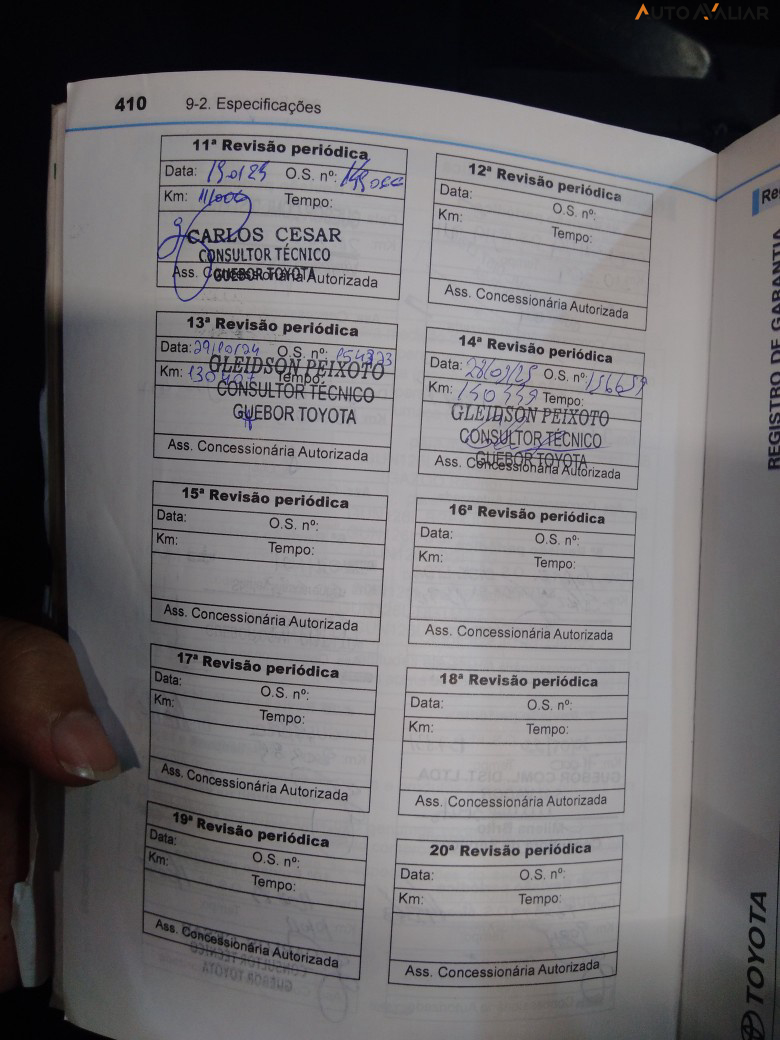 AUTO AVALIAR
410 9-2. Especificações
11ª Revisão periódica
Data: O.S. nº:
Km: Tempo:
CARLOS CESAR
CONSULTOR TÉCNICO
GUEBOR TOYOTA
Ass. Concessionária Autorizada
12ª Revisão periódica
Data: O.S. nº:
Km: Tempo:
Ass. Concessionária Autorizada
13ª Revisão periódica
Data: 29/10/24 O.S. nº: 154373
Km: 130407 Tempo:
GLEIDSON PEIXOTO
CONSULTOR TÉCNICO
GUEBOR TOYOTA
Ass. Concessionária Autorizada
14ª Revisão periódica
Data: O.S. nº: 156659
Km: Tempo:
GLEIDSON PEIXOTO
CONSULTOR TÉCNICO
GUEBOR TOYOTA
Ass. Concessionária Autorizada
15ª Revisão periódica
Data: O.S. nº:
Km: Tempo:
Ass. Concessionária Autorizada
16ª Revisão periódica
Data: O.S. nº:
Km: Tempo:
Ass. Concessionária Autorizada
17ª Revisão periódica
Data: O.S. nº:
Km: Tempo:
Ass. Concessionária Autorizada
18ª Revisão periódica
Data: O.S. nº:
Km: Tempo:
Ass. Concessionária Autorizada
19ª Revisão periódica
Data: O.S. nº:
Km: Tempo:
Ass. Concessionária Autorizada
20ª Revisão periódica
Data: O.S. nº:
Km: Tempo:
Ass. Concessionária Autorizada
REGISTRO DE GARANTIA
TOYOTA